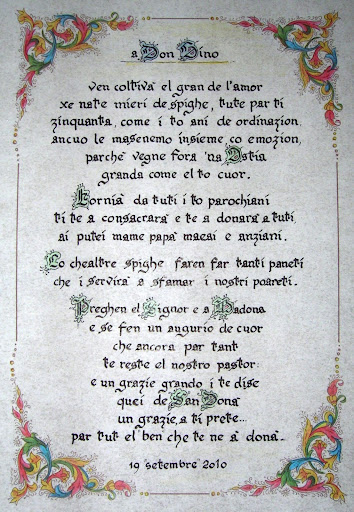 a Don Dino
ven coltivà el gran de l'amor
xe nate mieri de spighe, tute par ti
zinquanta, come i to ani de ordinazion,
ancuo le masenemo insieme co emozion,
parchè vegne fora 'na Ostia
granda come el to cuor.
Fornia da tuti i to parochiani
ti te a consacrarà e te a donarà a tuti,
ai putei mame papà malai e anziani.
Co chealtre spighe faren far tanti paneti
che i servirà a sfamar i nostri poareti.
Preghen el Signor e a Madona
e se fen un augurio de cuor
che ancora par tant
te reste el nostro pastor:
e un grazie grando i te dise
quei de San Donà
un grazie a ti prete...
par tut el ben che te ne à donà..
19 setembre 2010